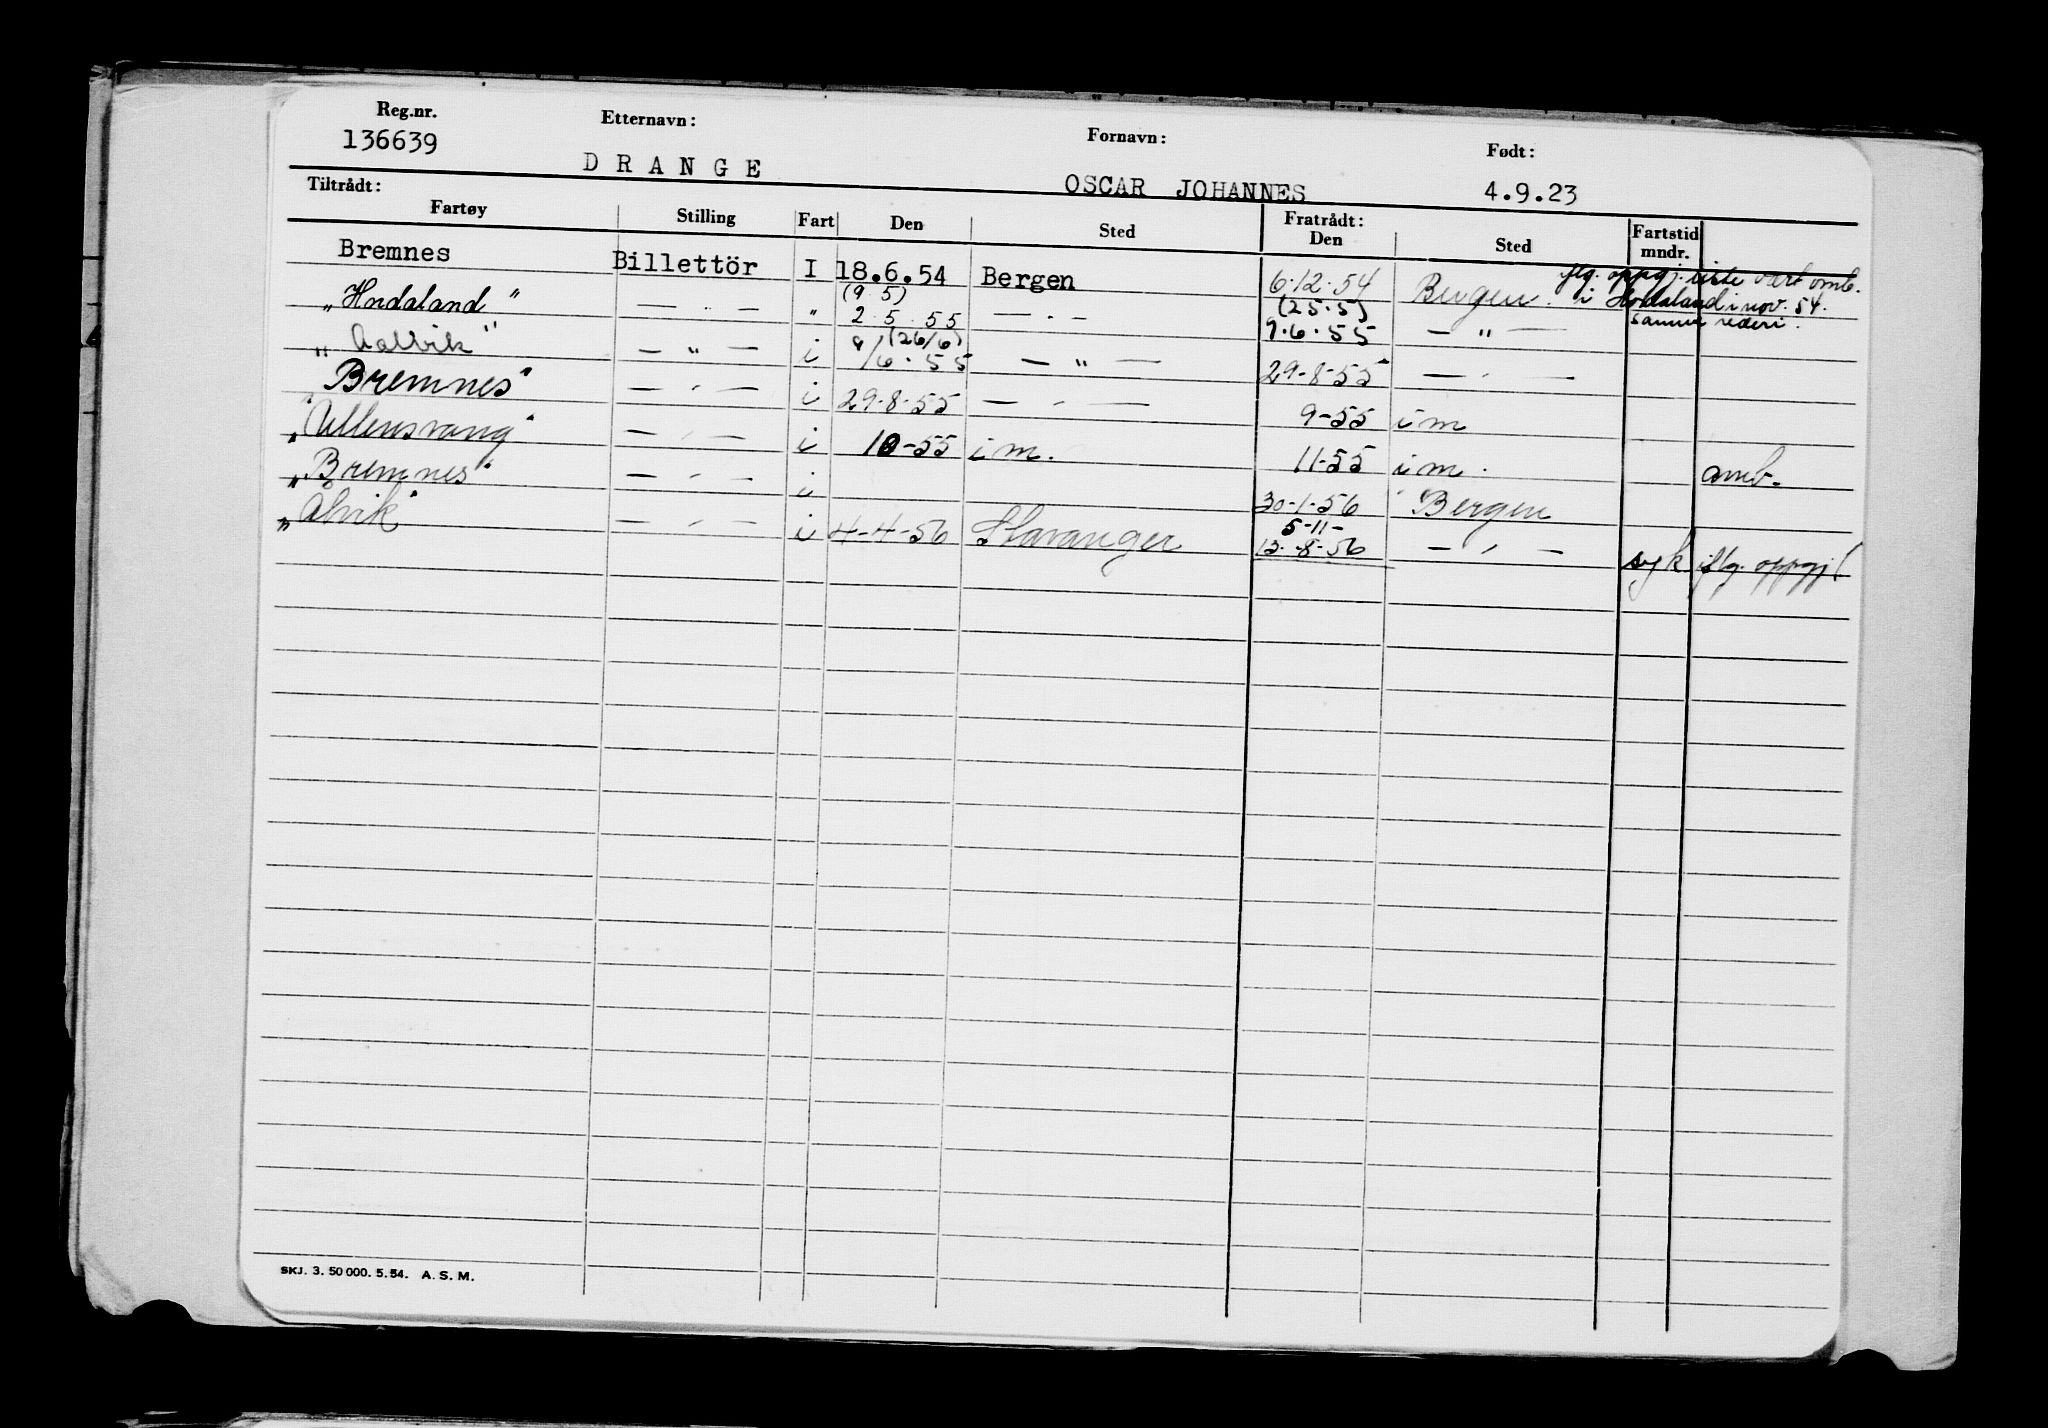 Reg.nr. Etternavn: Fornavn: Født:
136639 DRANGE OSCAR JOHANNES 4.9.23
Tiltrådt: Fratrådt:
Fartøy Stilling Fart Den Sted Den Sted Fartstid mndr.
Bremnes Billettör I 18.6.54 Bergen 6.12.54 Bergen. iflg. oppgj. liste vært omb.
i Hordaland i nov. 54.
samme rederi.
(9.5) (25.5)
"Hordaland" — . — " 2.5.55 — . — 9.6.55 — " —
(26/6)
"Aalvik" — " — i 9/6.55 — " — 29-8-55 — " —
"Bremnes" — " — i 29-8-55 — " — 9-55 i m
"Ullensvang" — " — i 10-55 i m. 11-55 i m. omb.
"Bremnes" — " — i 30-1-56 Bergen
5-11-
"Ålvik" — " — i 4-4-56 Stavanger 13.-8-56 — " — syk iflg. oppgj.
SKJ. 3. 50 000. 5. 54. A. S. M.